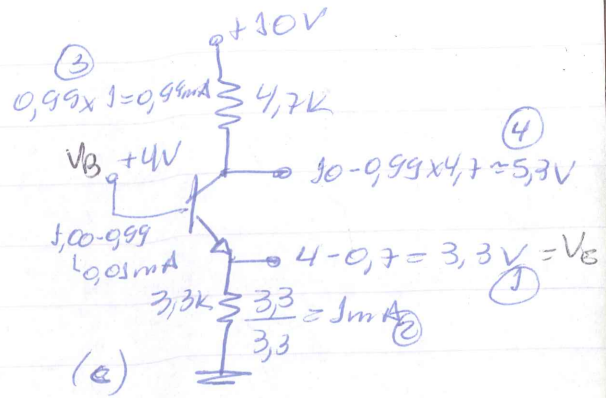 +10V
③
0,99x1=0,99mA
4,7K
④
VB +4V
10-0,99x4,7=5,3V
1,00-0,99
0,01mA
4-0,7=3,3V=VE
①
3,3K
3,3
3,3
=1mA
②
(c)